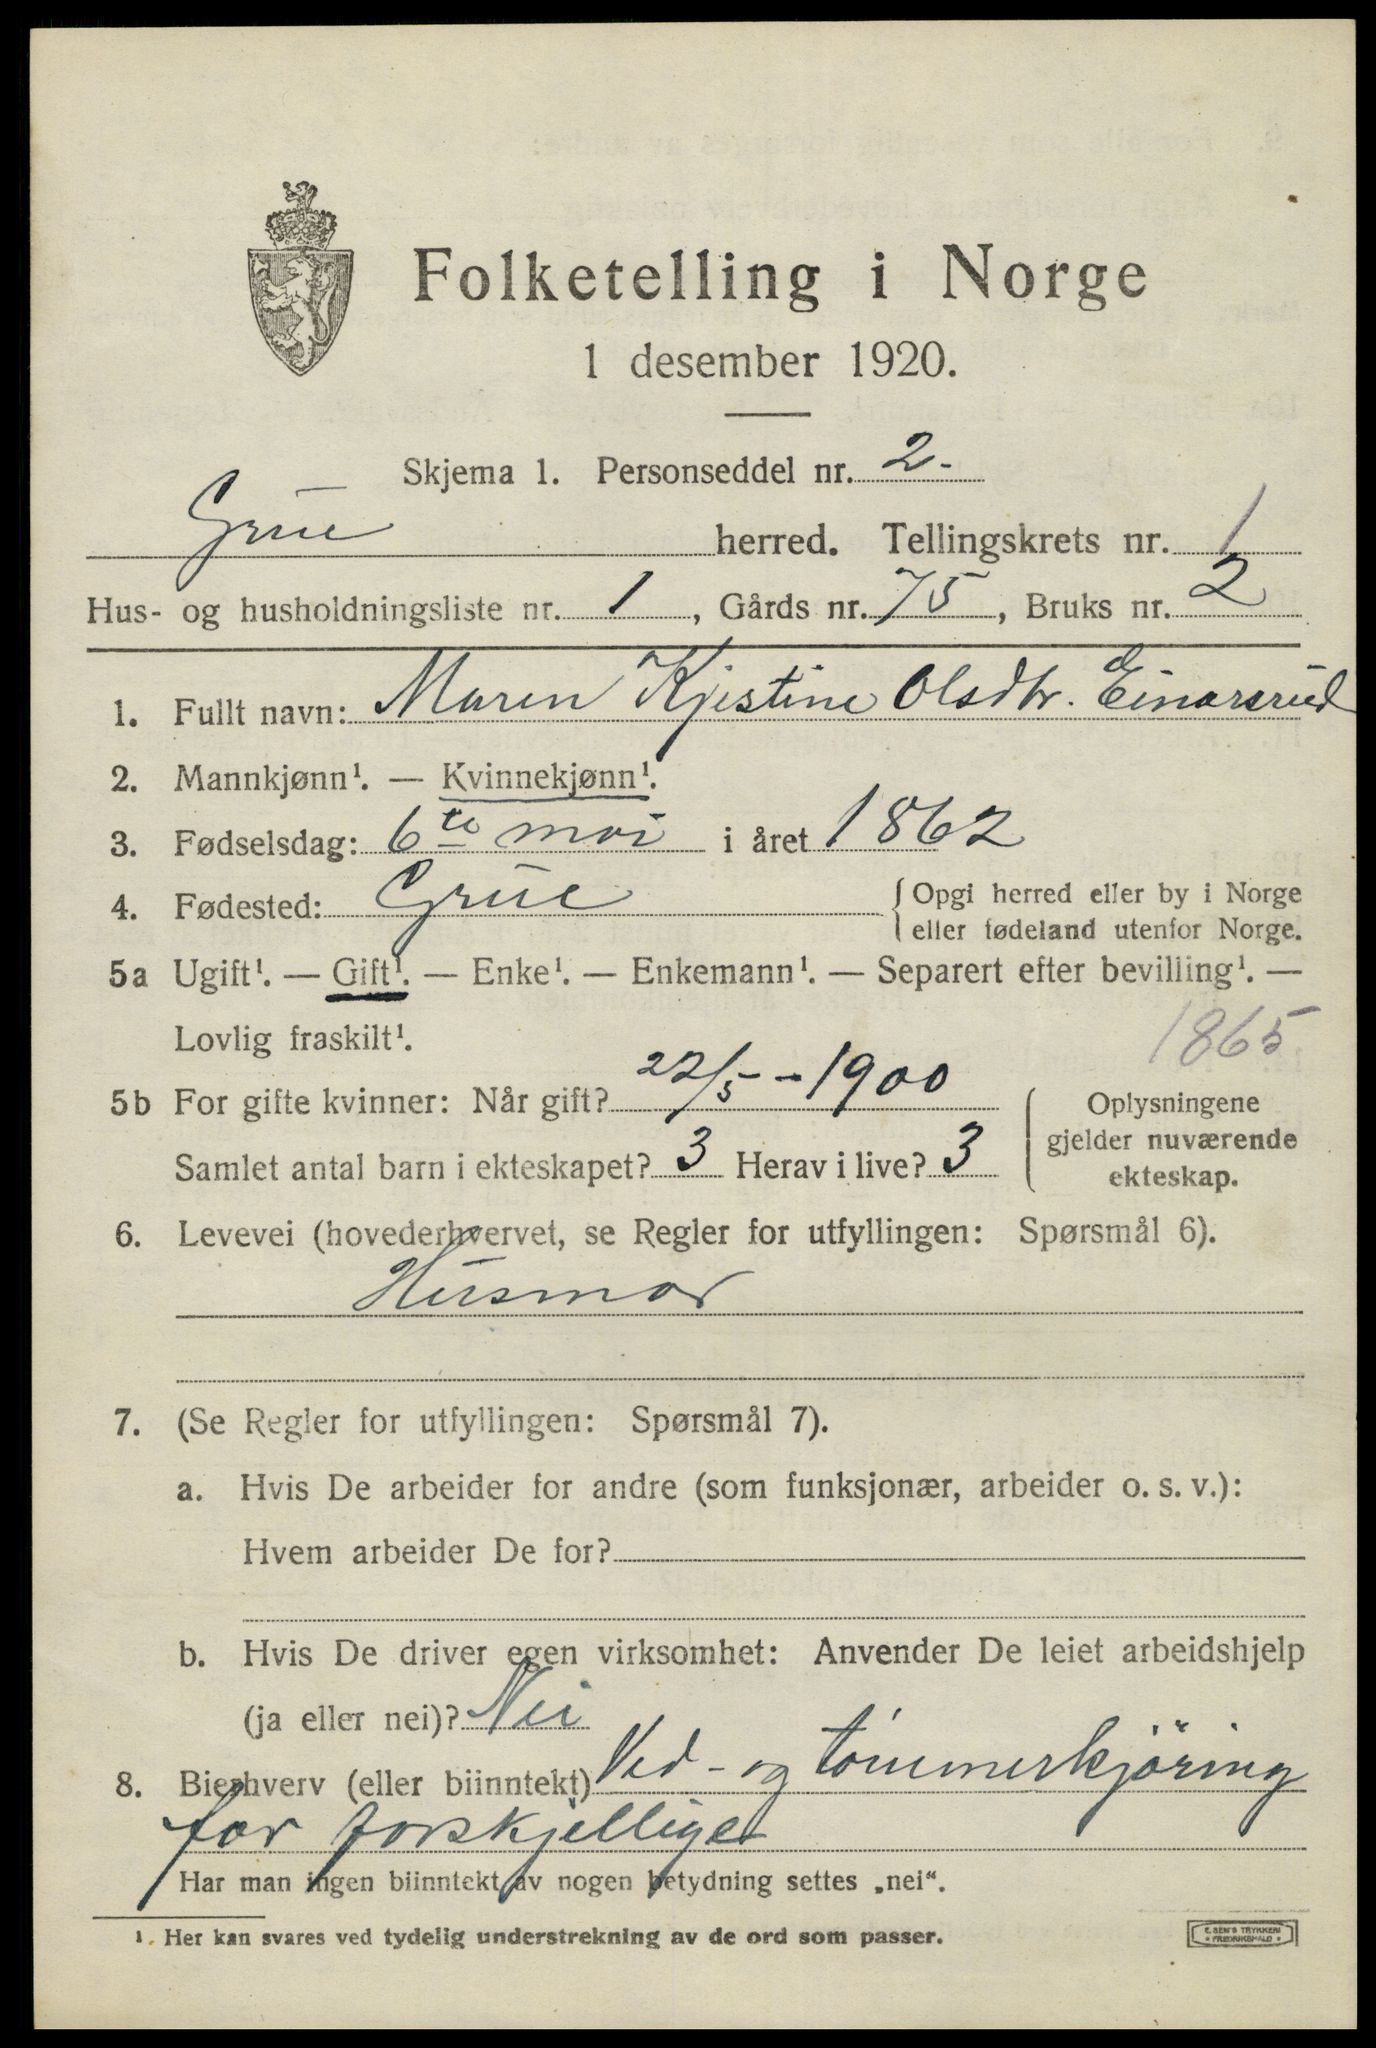 Folketelling i Norge
1 desember 1920.
Skjema 1. Personseddel nr. 2.
Grue herred. Tellingskrets nr. 1
Hus- og husholdningsliste nr. 1, Gårds nr. 75, Bruks nr. 2
1. Fullt navn: Maren Kjestine Olsdtr. Einarsrud
2. Mannkjønn¹. — Kvinnekjønn¹.
3. Fødselsdag: 6te mai i året 1862
4. Fødested: Grue { Opgi herred eller by i Norge
eller fødeland utenfor Norge.
5a Ugift¹. — Gift¹. — Enke¹. — Enkemann¹. — Separert efter bevilling¹. —
Lovlig fraskilt¹. 1865
5b For gifte kvinner: Når gift? 22/5 - 1900
Samlet antal barn i ekteskapet? 3 Herav i live? 3
Oplysningene
gjelder nuværende
ekteskap.
6. Levevei (hovederhvervet, se Regler for utfyllingen: Spørsmål 6).
Husmor
7. (Se Regler for utfyllingen: Spørsmål 7).
a. Hvis De arbeider for andre (som funksjonær, arbeider o. s. v.):
Hvem arbeider De for?
b. Hvis De driver egen virksomhet: Anvender De leiet arbeidshjelp
(ja eller nei)? Nei
8. Bierhverv (eller biinntekt) Ved- og tömmerkjöring
for forskjellige
Har man ingen biinntekt av nogen betydning settes „nei“.
¹. Her kan svares ved tydelig understrekning av de ord som passer.
E. SEM'S TRYKKERI
FREDRIKSHALD